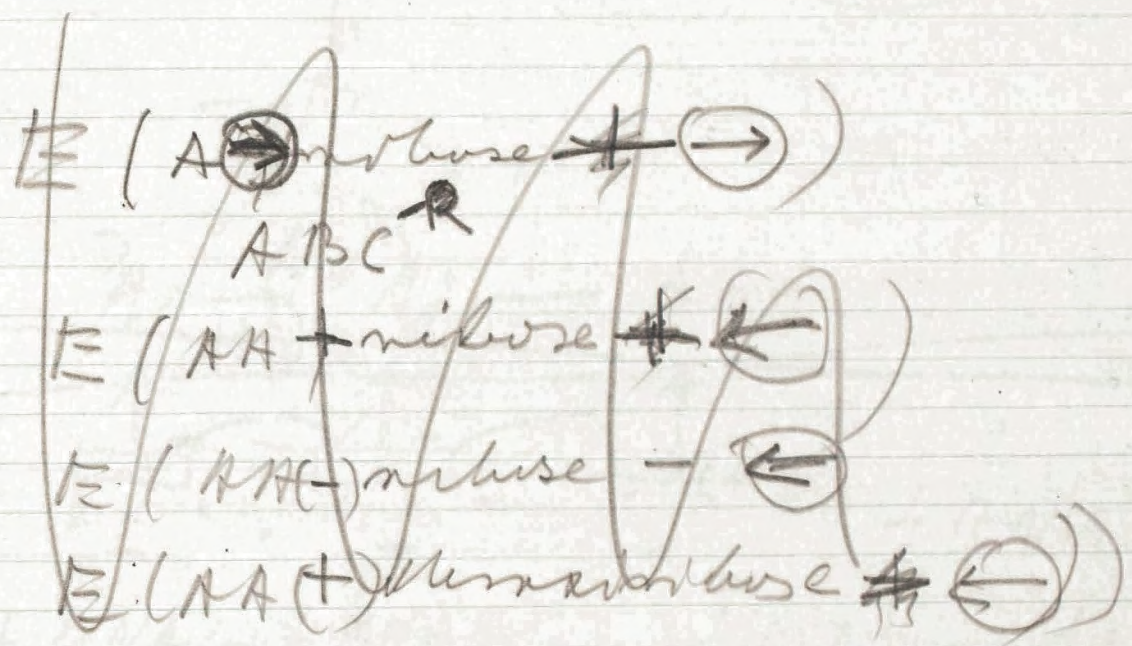 E ( A → ribose ← → )
ABC R
E ( AA + ribose + ← )
E ( AA (-) ribose - ← )
E ( AA (+) ribose ← ) )